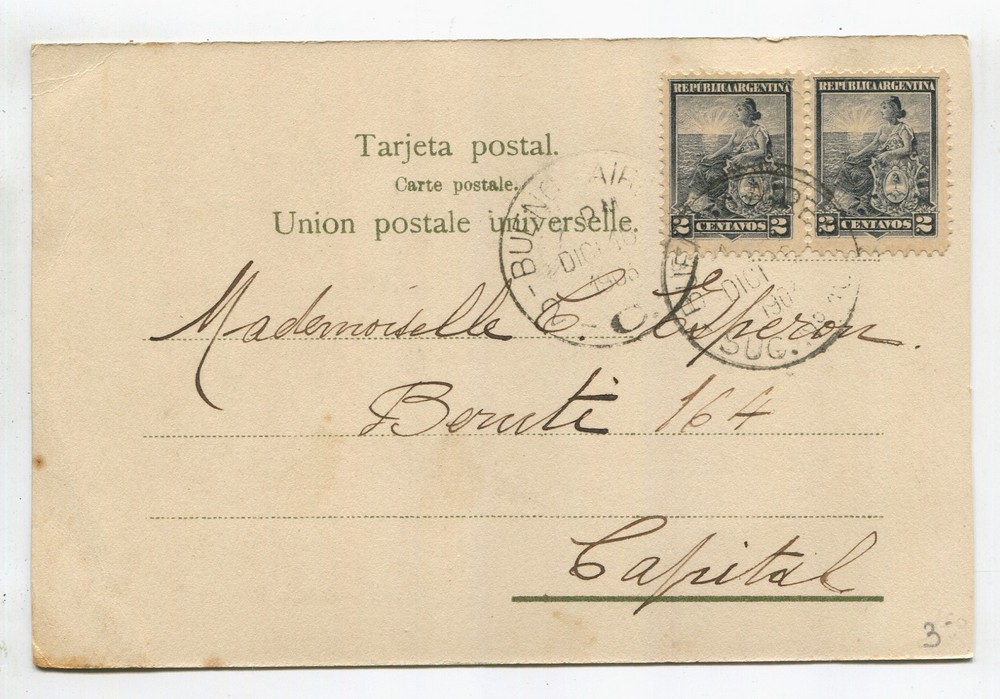 REPUBLICA ARGENTINA
REPUBLICA ARGENTINA
2 CENTAVOS 2
2 CENTAVOS 2
Tarjeta postal.
Carte postale.
Union postale universelle.
DICI
DICI
SUC.
Mademoiselle C. Esperon.
Beruti 164
Capital
3